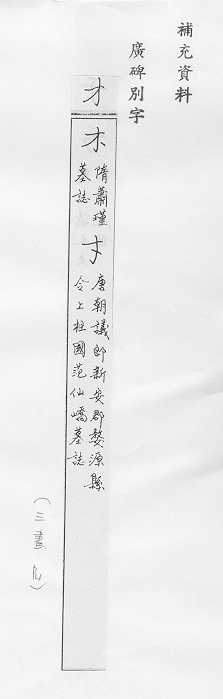 補充資料
廣碑別字
才
隋蕭瑾
墓誌
唐朝議郎新安郡婺源縣
令上柱國范仙嶠墓誌